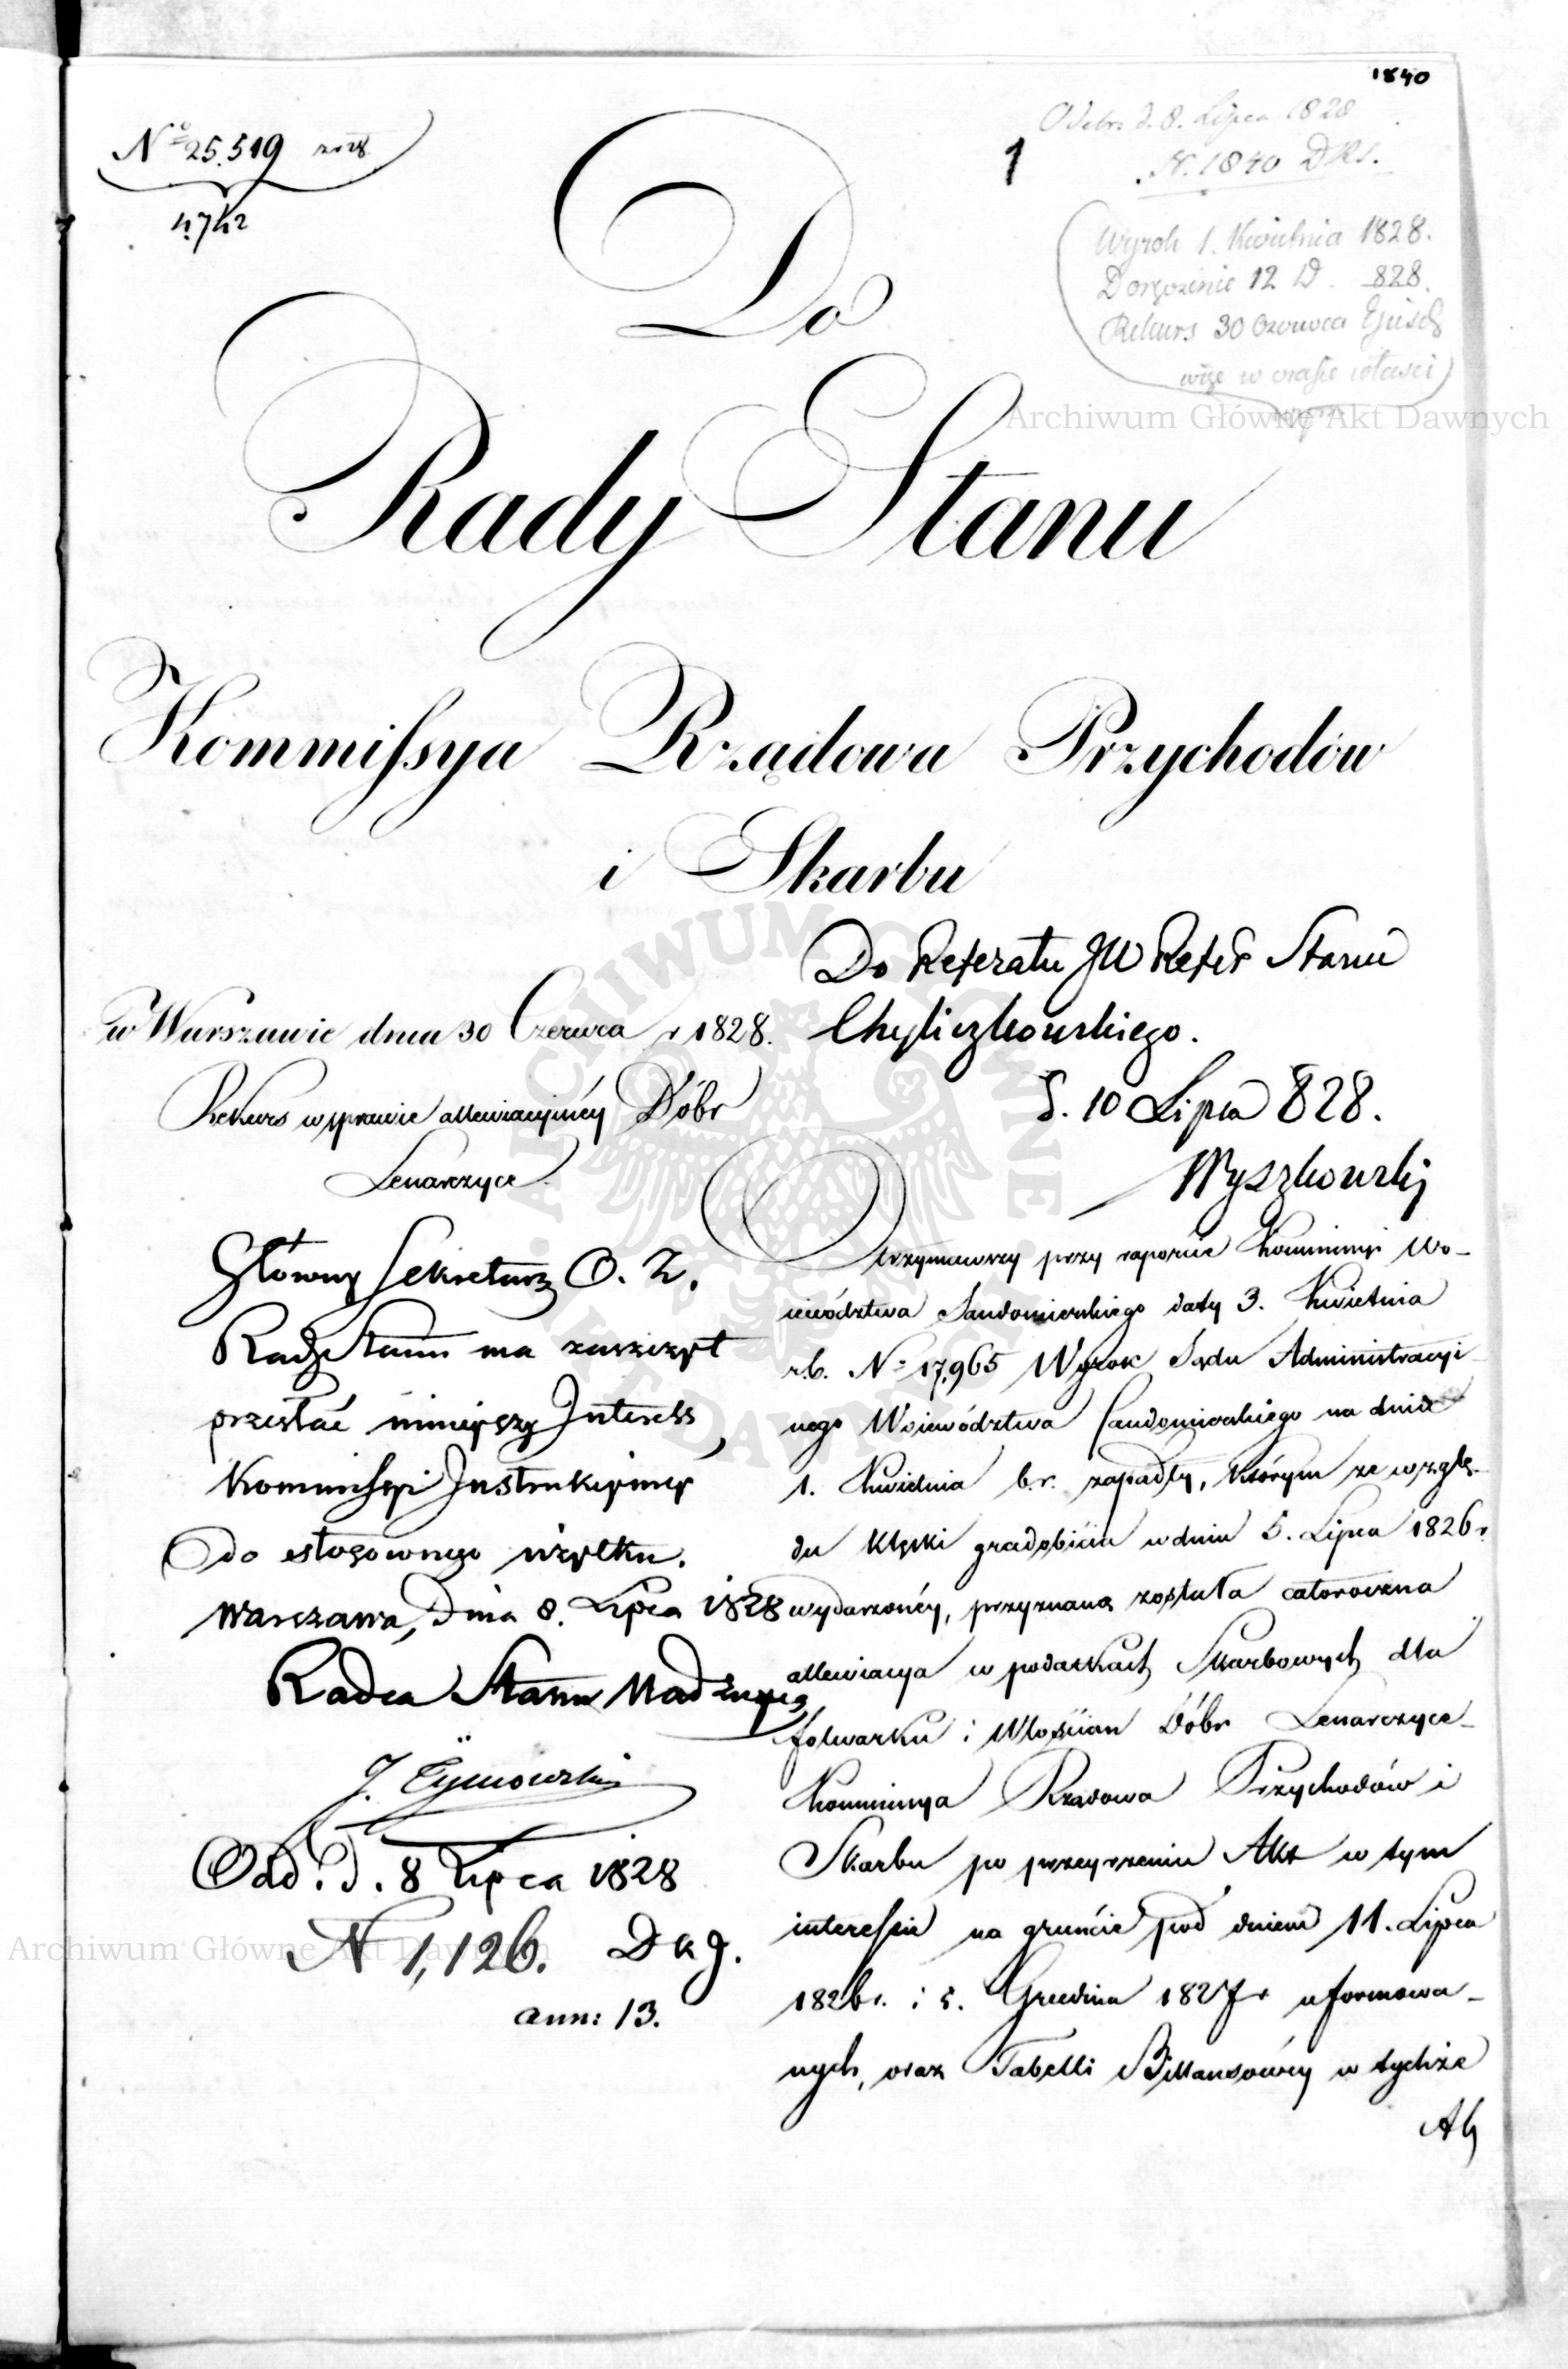 1840
1
Odebr. d. 8. Lipca 1828
N. 1840 DKI.
Wyrok 1. Kwietnia 1828.
Doręczenie 12 D. 828.
Rekurs 30 Czerwca Ejusd
więc w czasie
Nº 25.519
4742
Do
Rady Stanu
Kommissya Rządowa Przychodów
i Skarbu
w Warszawie dnia 30 Czerwca r 1828.
Rekurs w sprawie allewiacyjnéy Dóbr
Lenarczyce
Główny Sekretarz O. Z.
Rady Stanu ma zaszczyt
przesłać ninieyszy Interess
Kommissyi Instrukcyiney
do stosownego użytku.
Warszawa, Dnia 8. Lipca 1828
Radca Stanu Nadzwyczay
J. Tymowski
Odd. d. 8 Lipca 1828
N 1,126. Dkg.
ann: 13.
Do Referatu JW Refer Stanu
Chyliczkowskiego.
d. 10 Lipca 828.
Wyszkowski
Otrzymawszy przy raporcie Kommissyi Wo-
iewództwa Sandomierskiego daty 3. Kwietnia
r.b. Nº 17,965 Wyrok Sądu Administracyi-
nego Województwa Sandomierskiego na dniu
1. Kwietnia b.r. zapadły, którym ze wzglę-
du klęski gradobicia w dniu 5. Lipca 1826 r.
wydarzonéy, przyznana została całoroczna
allewiacya w podatkach Skarbowych dla
folwarku i Włościan Dóbr Lenarczyce-
Kommissya Rządowa Przychodów i
Skarbu po przeyrzeniu Akt w tym
interessie na gruncie pod dniem 11. Lipca
1826 r. i 5. Grudnia 1827 r uformowa-
nych, oraz Tabelli Billansowéy w tychże
Ak
Archiwum Główne Akt Dawnych
Archiwum Główne Akt Dawnych
ARCHIWUM GŁÓWNE AKT DAWNYCH